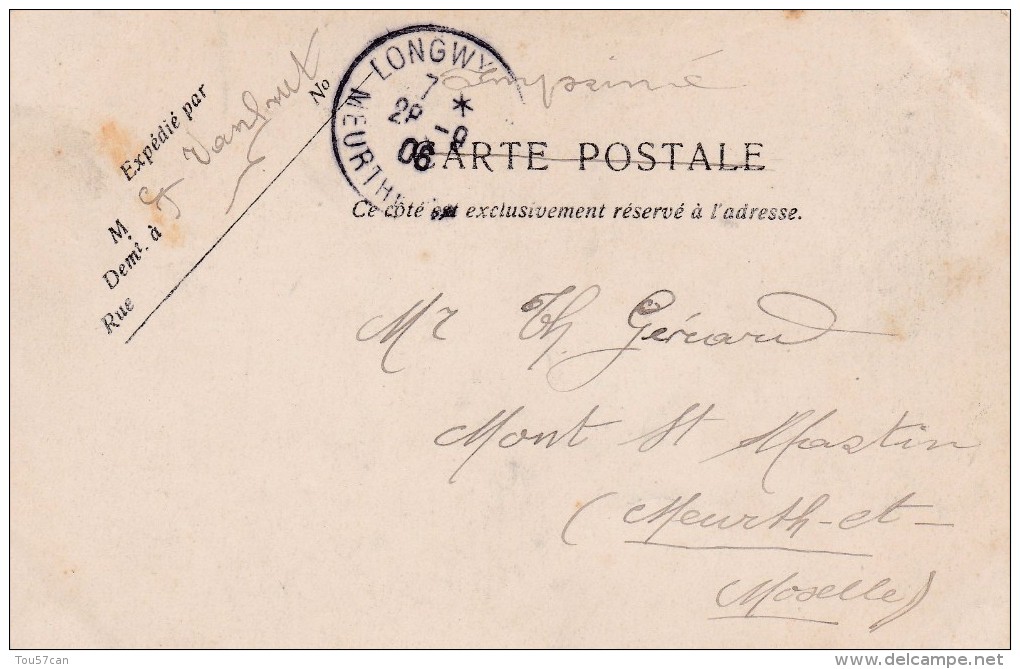 Expédié par
M
Demt. à
Rue
No
LONGWY
MEURTHE
7
28 -9
06
Imprimé
CARTE POSTALE
Ce côté est exclusivement réservé à l'adresse.
Mr Th. Gérard
Mont St Martin
(Meurth-et-
Moselle)
Tou57can
www.delcampe.net